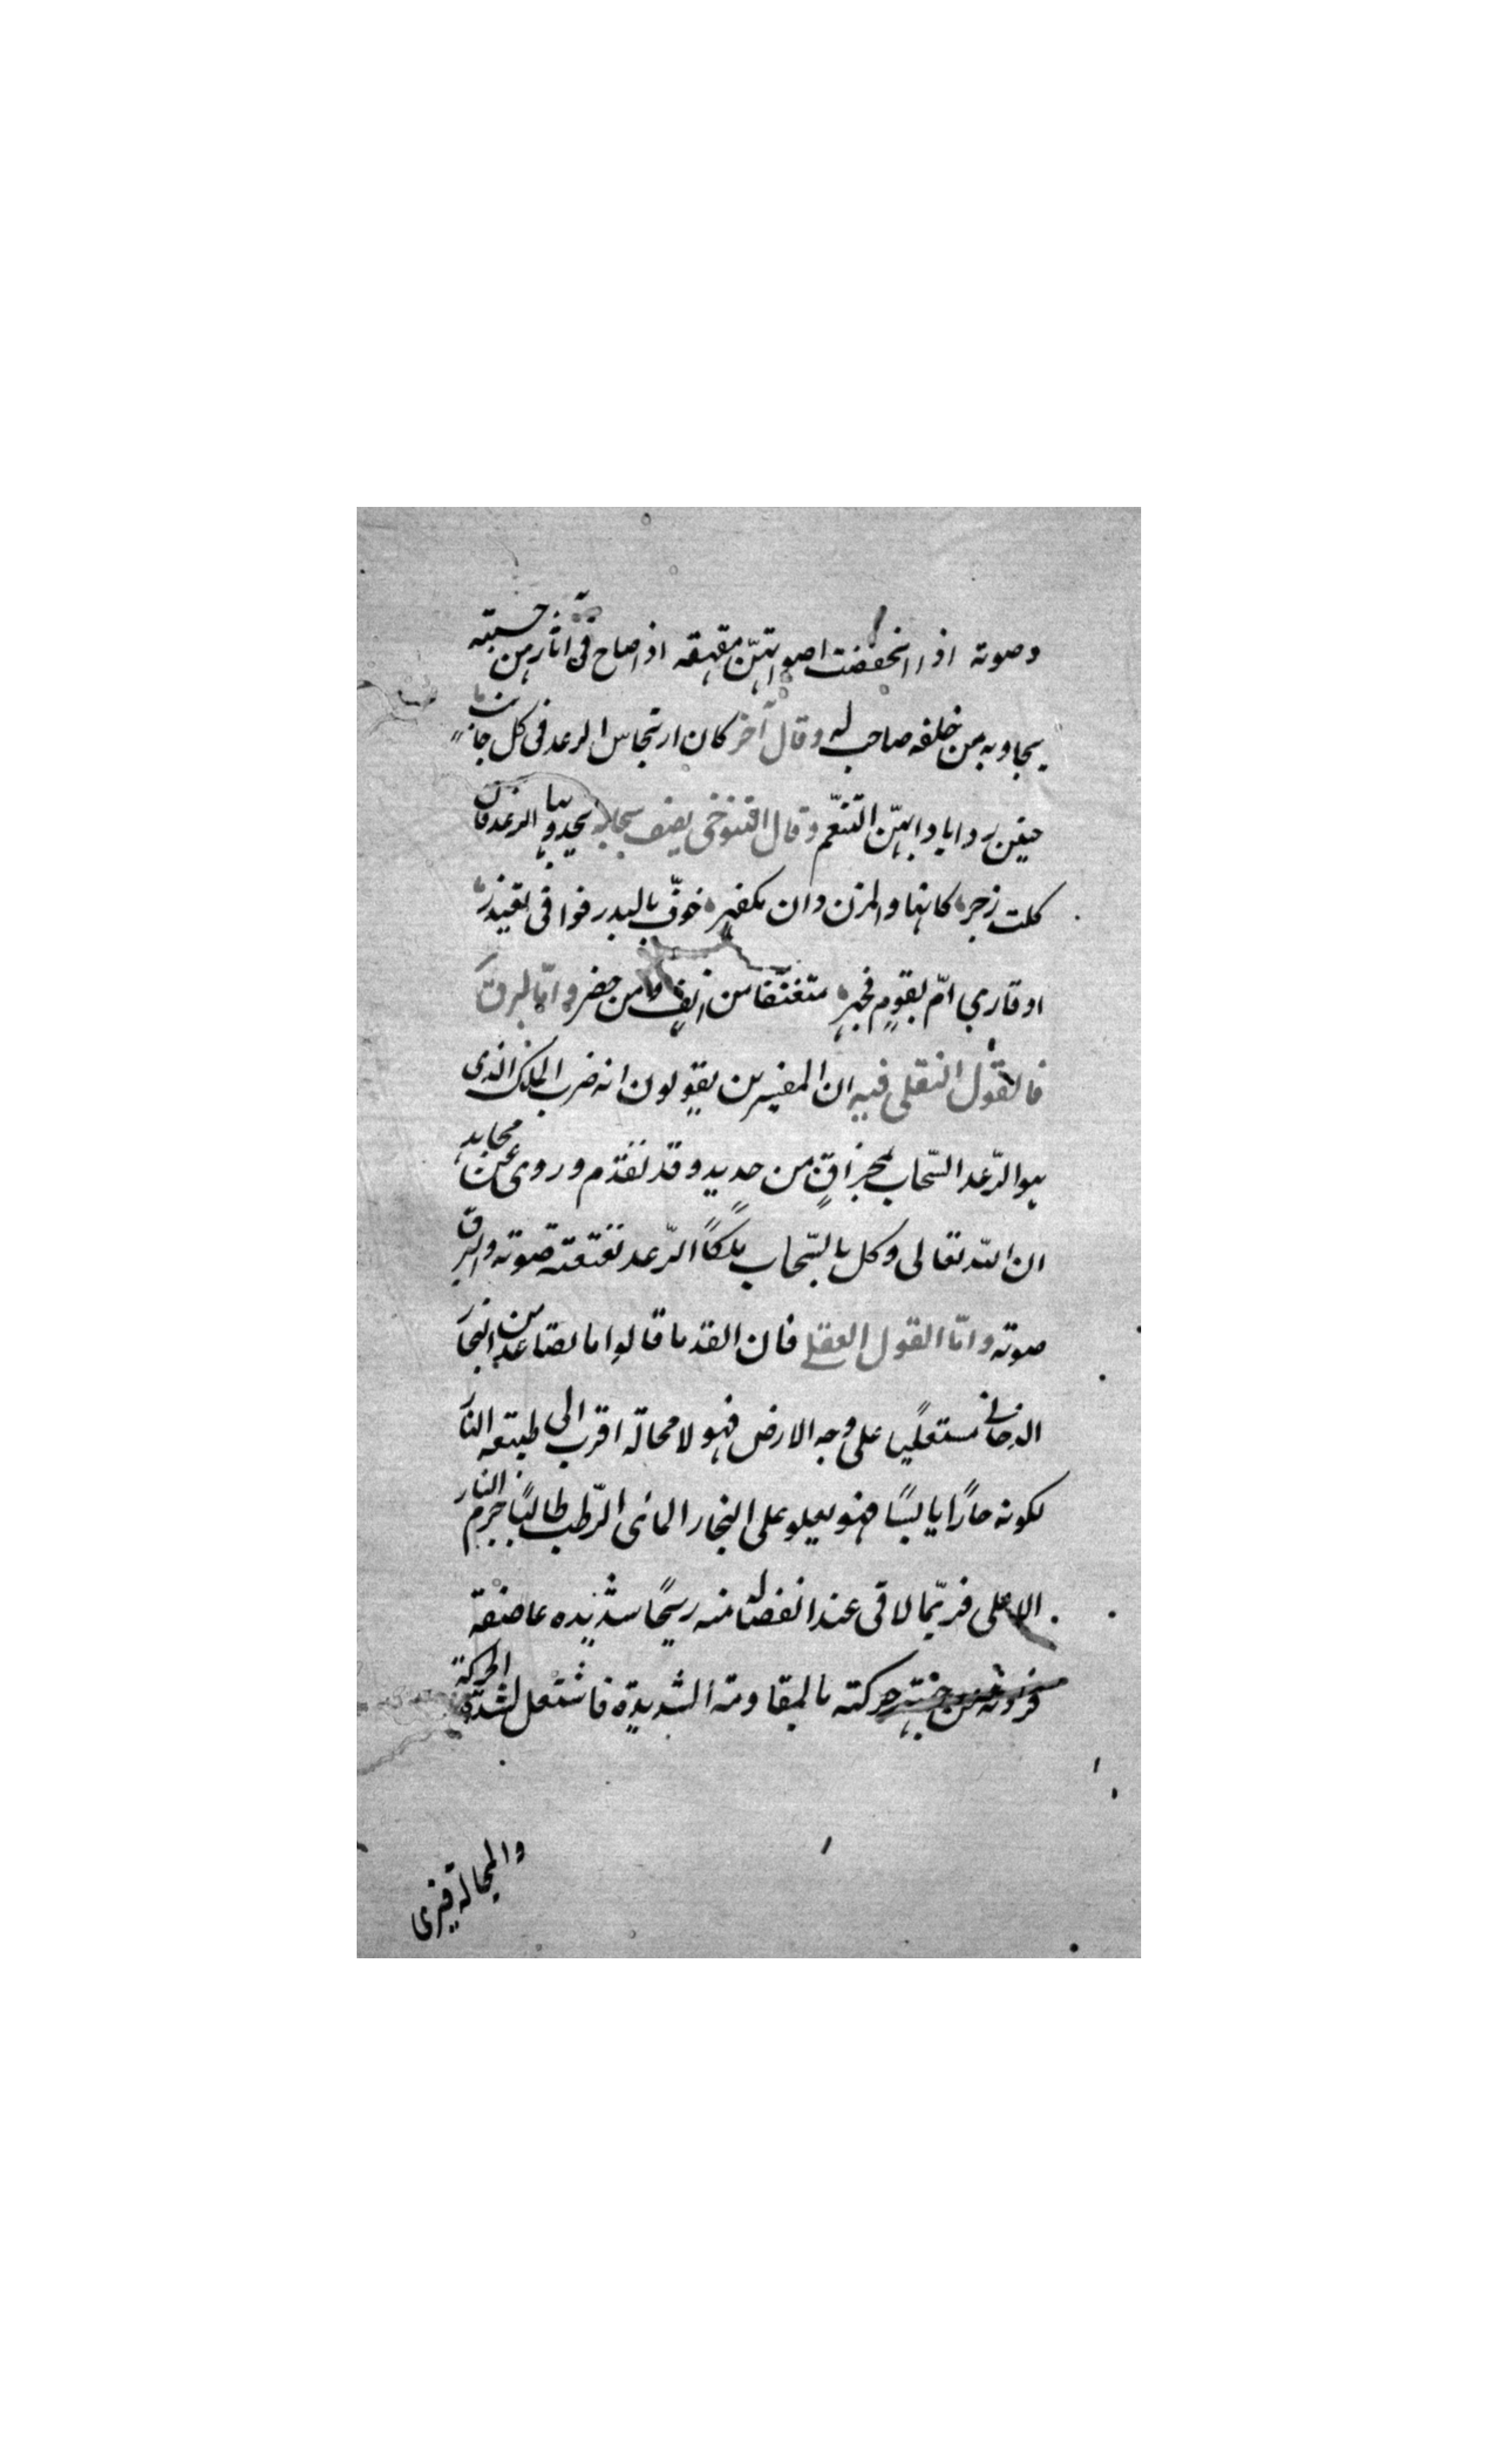 وصوته اذا انخفضت اصواتهنّ مقهقه اذا صاح في اثارهن حسبته
يجاوبه من خلفه صاحب له وقال آخر كان ارتجاس الرعد في كل جانب
حنين ردايا دابهنّ التنعّم وقال التنوخي يصف سحابه يحدو بها الرعد فان
كلت زجر كانها والمزن دان مكفهر خوّف بالبدر فوافى يعتذر
او قاري امّ بقوم فجهر متغنّقا من انف لا من حضر وامّا البرق
فالقول النقلي فيه ان المفسرين يقولون انه ضرب الملك الذي
هو الرّعد السّحاب بمخراق من حديد وقد تقدّم وروى عن مجاهد
ان الله تعالى وكل بالسّحاب ملكًا الرّعد تقعقعة صوته والبرق
صوته وامّا القول العقلي فان القدما قالوا ما تصاعد من البخار
الدخاني مستعليا على وجه الارض فهو لا محالة اقرب الى طبيعه النار
لكونه حارًا يابسًا فهو يعلو على البخار المائى الرّطب طالبًا جرم النار
الاعلى فربّما لاقى عند انفصاله منه ريحًا شديده عاصفة
حركته بالمقاومة الشديدة فاشتعل لشدّة الحركة
والمحالة فيرى